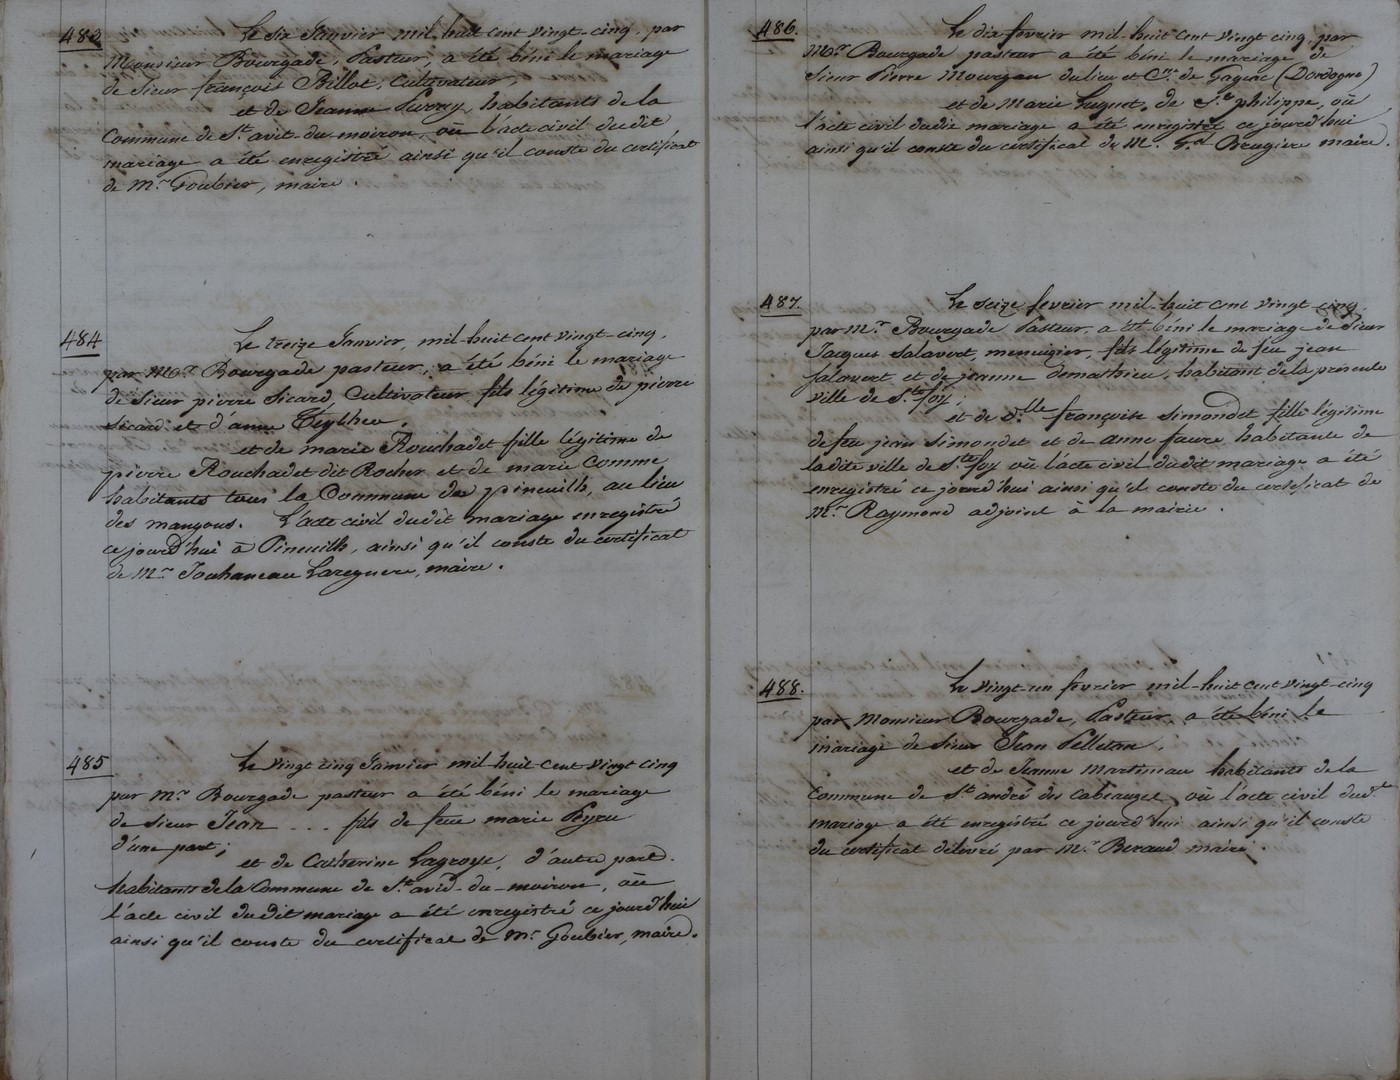 483
Le six Janvier mil-huit cent vingt-cinq, par
Monsieur Bourgade, Pasteur, a été béni le mariage
de Sieur françois Billot, Cultivateur,
et de Jeanne habitants de la
Commune de St. avit-du-moiron, où l'acte civil dudit
mariage a été enregistré ainsi qu'il conste du certificat
de Mr. Goubier, maire.
484
Le treize Janvier, mil-huit cent vingt-cinq,
par Mr. Bourgade pasteur, a été béni le mariage
de Sieur pierre Sicard, Cultivateur fils légitime de pierre
Sicard et d'anne
et de marie Rouchadet fille légitime de
pierre Rouchadet dit Rocher et de marie Comme
habitants tous la Commune de pineuilh, au lieu
des mangons. L'acte civil dudit mariage enregistré
ce jourd'hui à Pineuilh, ainsi qu'il conste du certificat
de Mr. Jouhaneau Lareguere, maire.
485
Le vingt cinq Janvier mil-huit-cent vingt cinq
par Mr. Bourgade pasteur a été béni le mariage
de Sieur Jean ... fils de feue marie Peyru
d'une part;
et de Catherine Lagroye, d'autre part.
habitants de la Commune de St. avid-du-moiron, où
l'acte civil dudit mariage a été enregistré ce jourd'hui
ainsi qu'il conste du certificat de Mr. Goubier, maire.
486.
Le dix fevrier mil-huit cent vingt cinq, par
Mr. Bourgade pasteur a été béni le mariage de
Sieur Pierre Mourgou du lieu et Cne. de Gageac (Dordogne)
et de Marie Hugon, de St. philippe, où
l'acte civil dudit mariage a été enregistré ce jourd'hui
ainsi qu'il conste du certificat de M. Brugiere maire.
487.
Le seize fevrier mil-huit cent vingt-cinq,
par Mr. Bourgade Pasteur, a été béni le mariage de Sieur
Jacques Salavert, menuisier, fils légitime de feu jean
Salavert et de jeanne demathieu, habitant de la présente
ville de Ste foy;
et de dlle françoise Simondet fille légitime
de feu jean Simondet et de anne faure habitante de
la dite ville de Ste foy où l'acte civil dudit mariage a été
enregistré ce jourd'hui ainsi qu'il conste du certificat de
Mr. Raymond adjoint à la mairie.
488.
Le vingt-un fevrier mil-huit cent vingt-cinq
par Monsieur Bourgade, Pasteur, a été béni le
mariage de Sieur Jean Pelletan,
et de Jeanne Martineau habitants de la
Commune de St. andré des Cabeauzes, où l'acte civil dudt
mariage a été enregistré ce jourd'hui ainsi qu'il conste
du certificat délivré par Mr. Beraud maire.